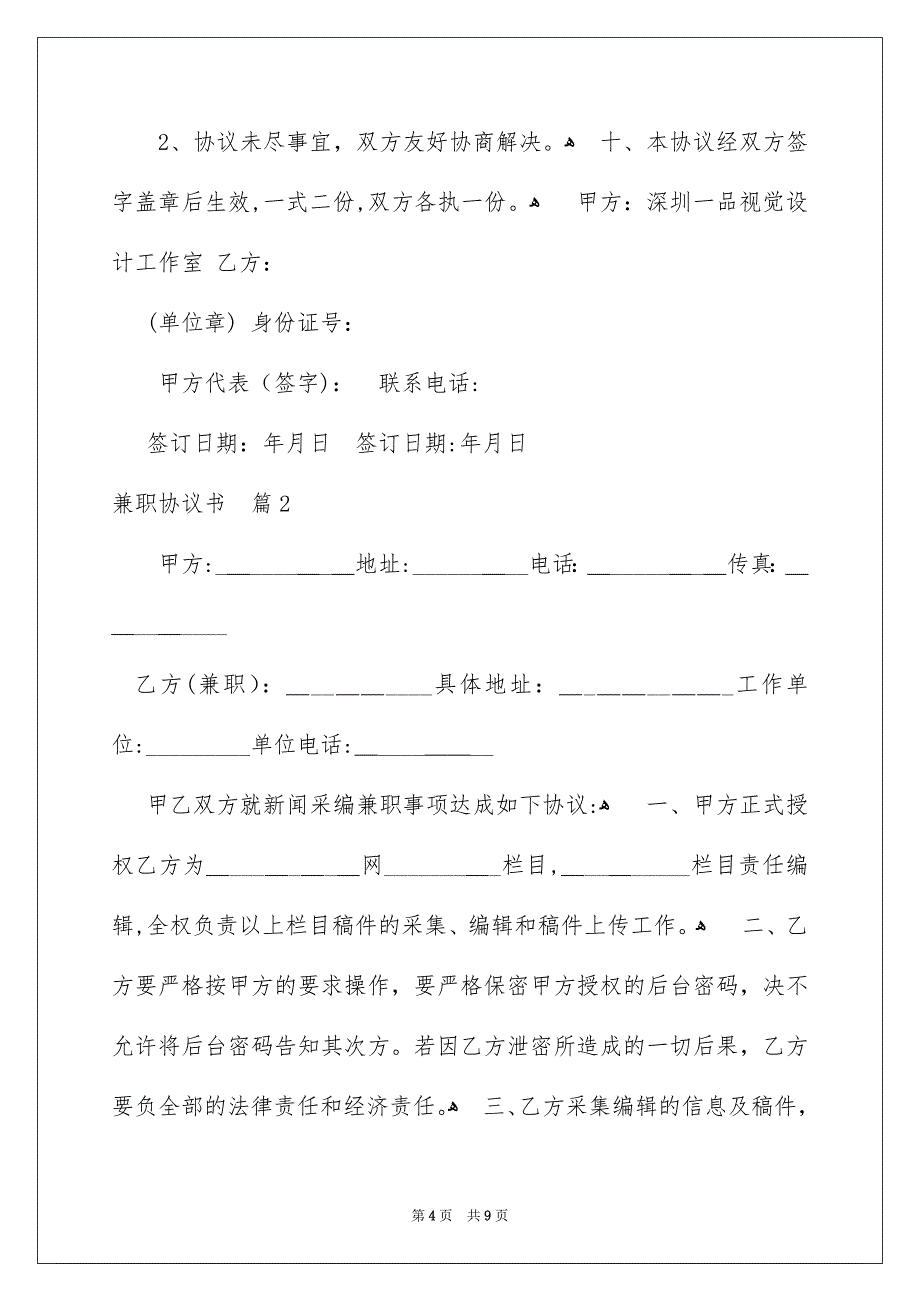 2、协议未尽事宜，双方友好协商解决。ﻫ 十、本协议经双方签
字盖章后生效,一式二份,双方各执一份。ﻫ 甲方：深圳一品视觉设
计工作室 乙方：
(单位章) 身份证号：
甲方代表（签字)： 联系电话:
签订日期：年月日 签订日期:年月日
兼职协议书 篇2
甲方:____________地址:__________电话：____________传真：__
__________
乙方(兼职）：____________具体地址：______________工作单
位:_________单位电话:____________
甲乙双方就新闻采编兼职事项达成如下协议:ﻫ 一、甲方正式授
权乙方为_____________网__________栏目,___________栏目责任编
辑,全权负责以上栏目稿件的采集、编辑和稿件上传工作。ﻫ 二、乙
方要严格按甲方的要求操作，要严格保密甲方授权的后台密码，决不
允许将后台密码告知其次方。若因乙方泄密所造成的一切后果，乙方
要负全部的法律责任和经济责任。ﻫ 三、乙方采集编辑的信息及稿件，
第4页 共9页